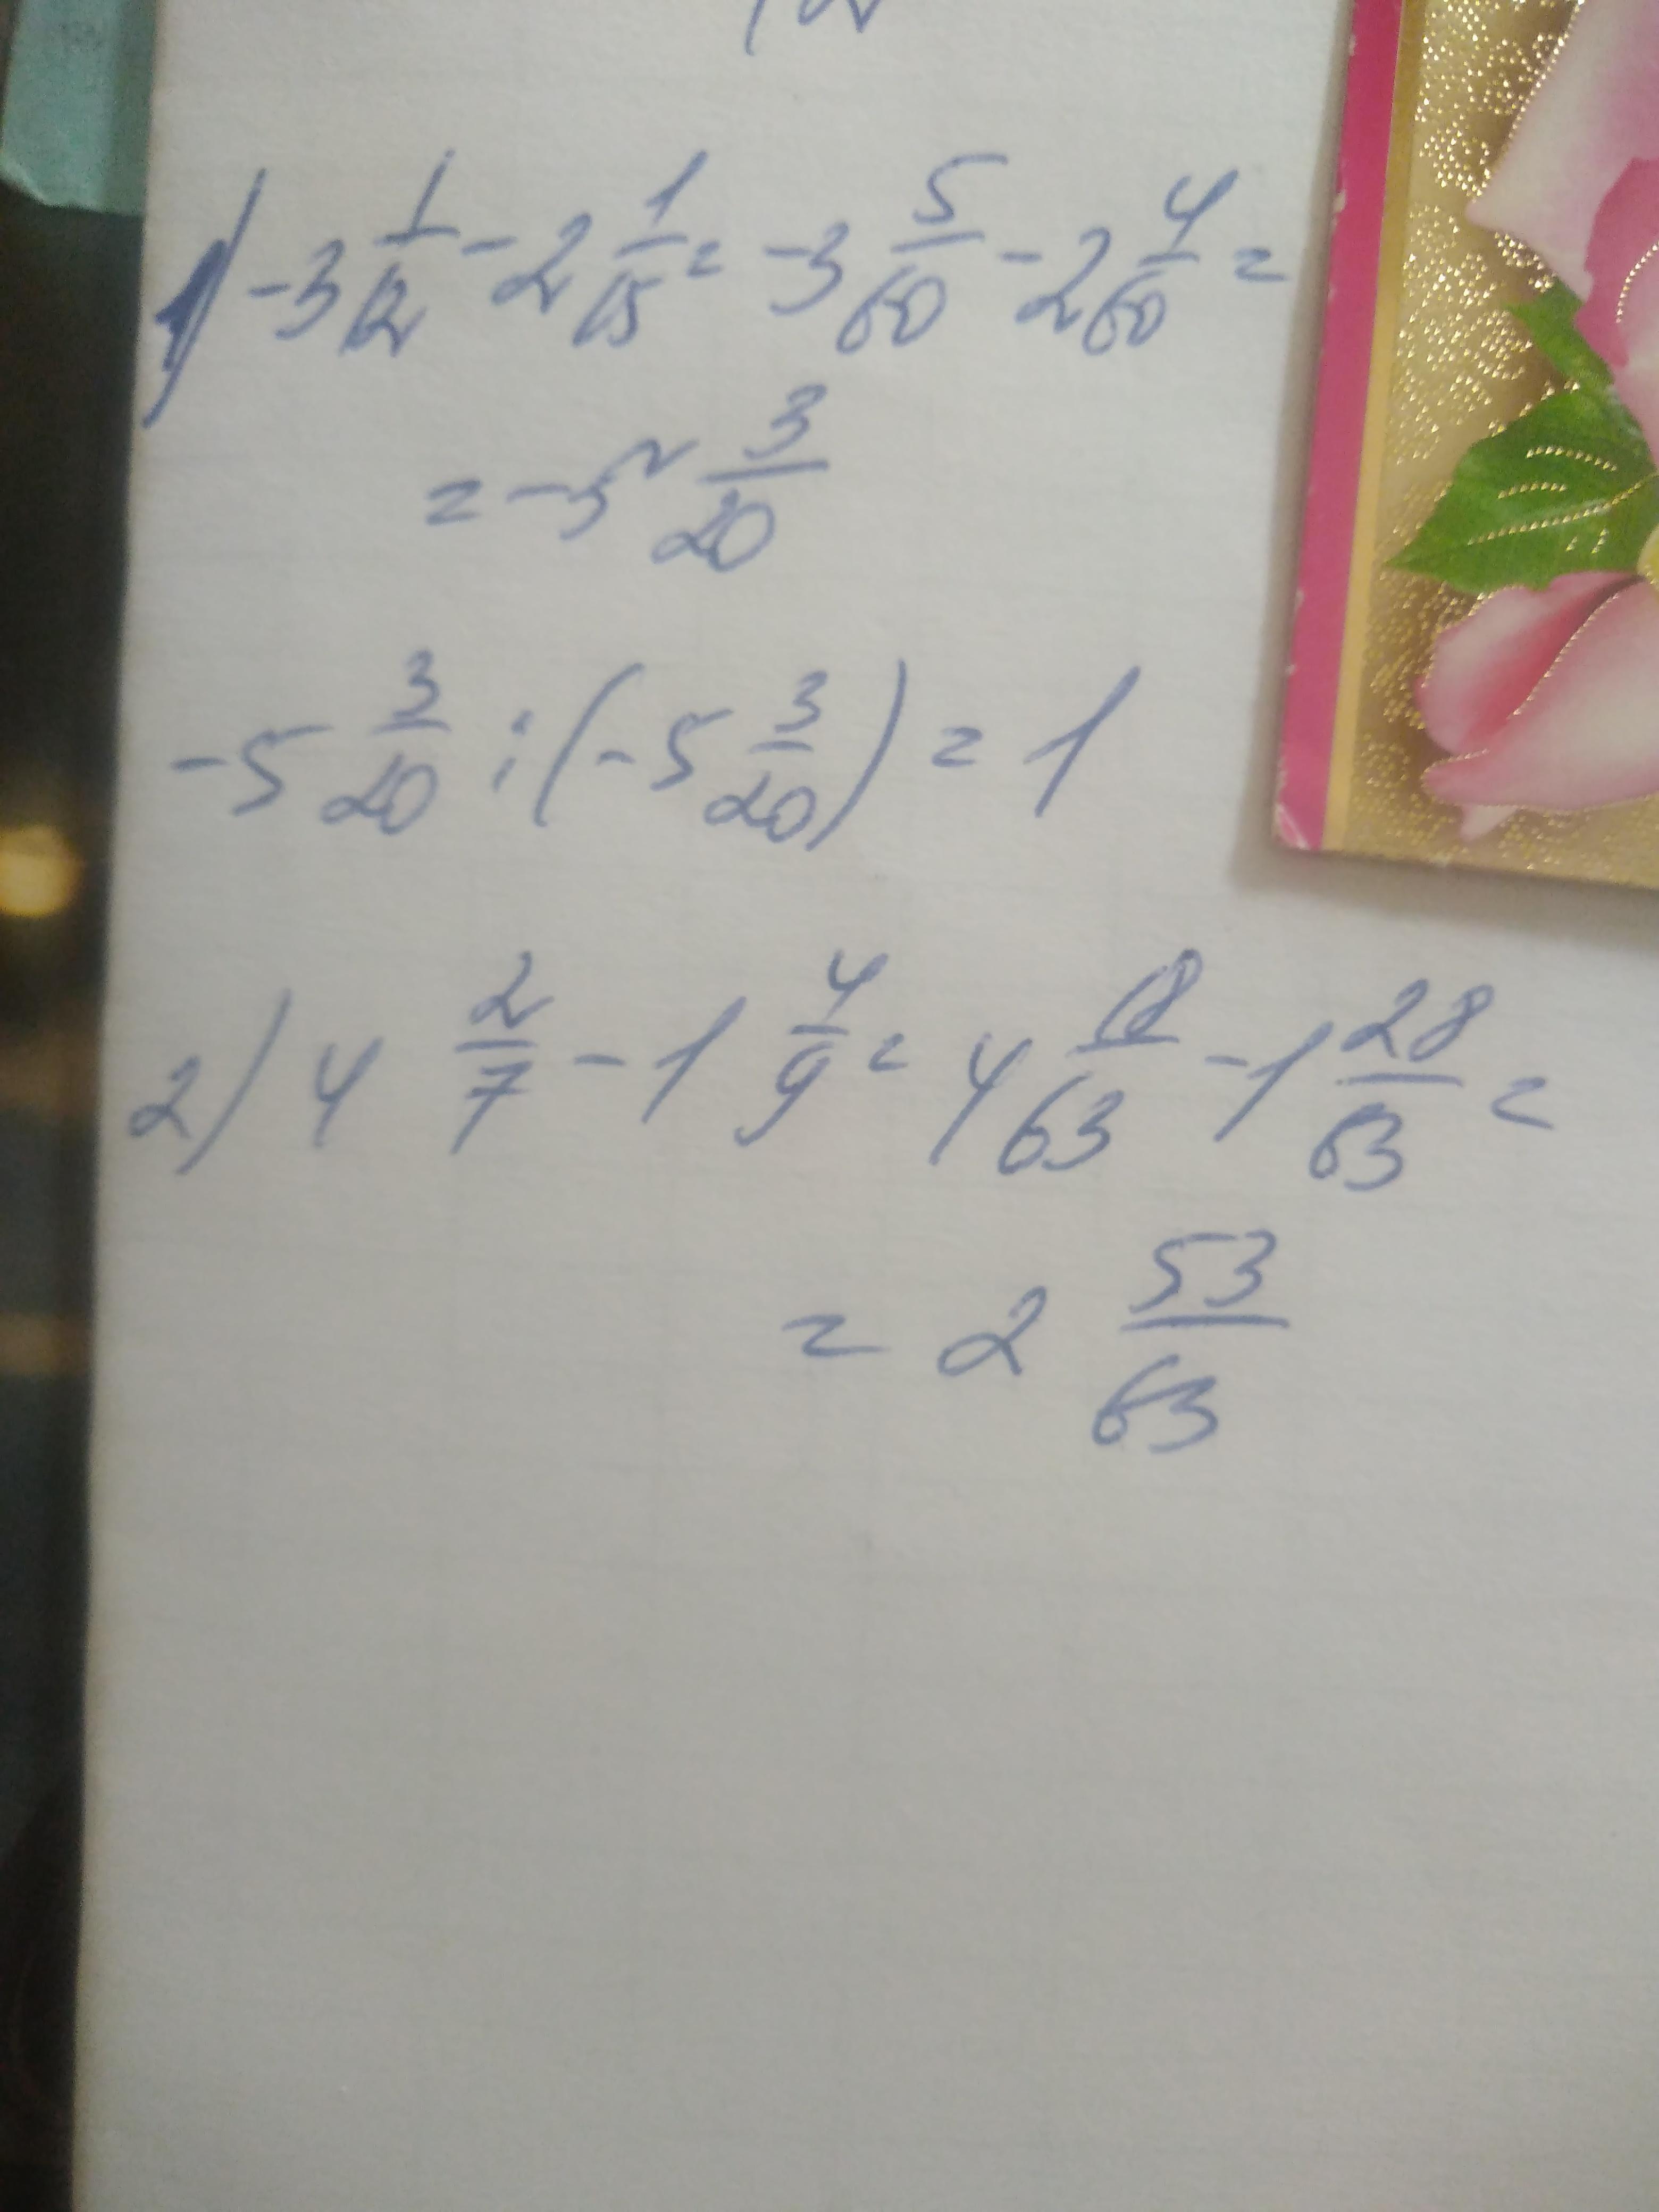 1) -3 1/12 - 2 1/15 = -3 5/60 - 2 4/60 =
= -5 3/20
-5 3/20 : (-5 3/20) = 1
2) 4 2/7 - 1 4/9 = 4 18/63 - 1 28/63 =
= 2 53/63